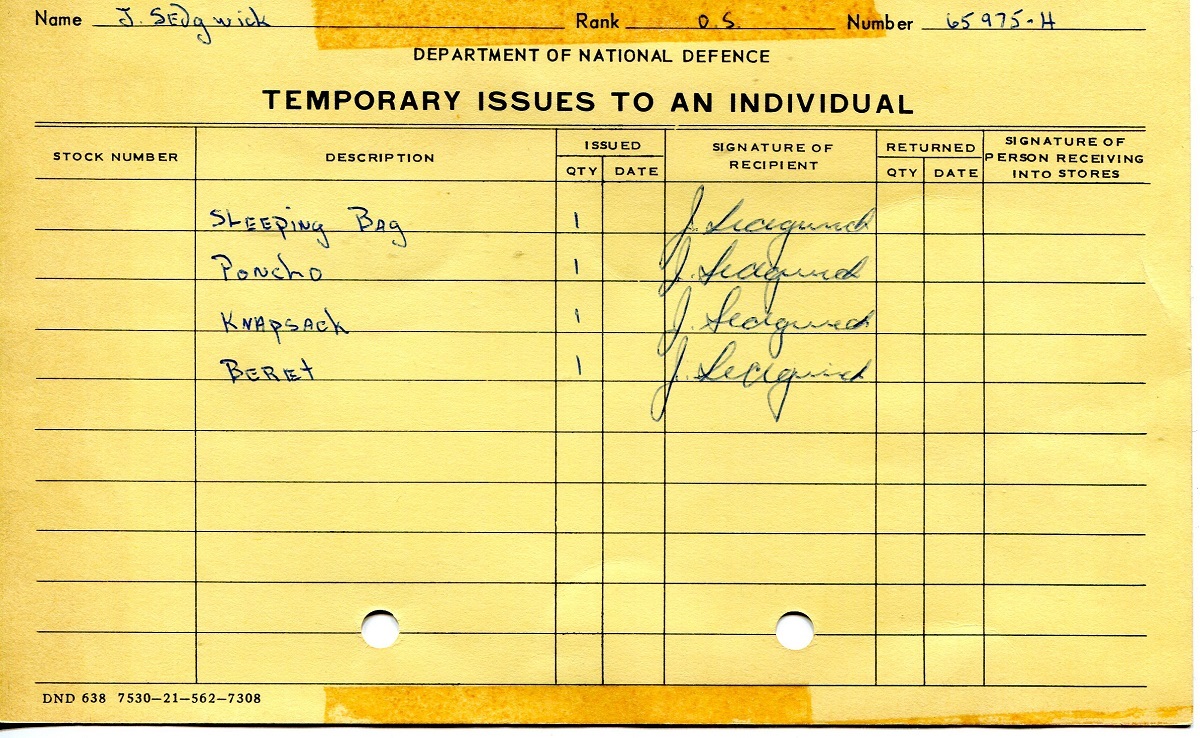 Name J. SEDgwick Rank O.S. Number 65975-H
DEPARTMENT OF NATIONAL DEFENCE
TEMPORARY ISSUES TO AN INDIVIDUAL
STOCK NUMBER DESCRIPTION ISSUED QTY DATE SIGNATURE OF RECIPIENT RETURNED QTY DATE SIGNATURE OF PERSON RECEIVING INTO STORES
SLEEPING BAg 1 J. Sedgwick
PoNchO 1 J. Sedgwick
KNAPSACK 1 J. Sedgwick
BEREt 1 J. Sedgwick
DND 638 7530–21–562–7308